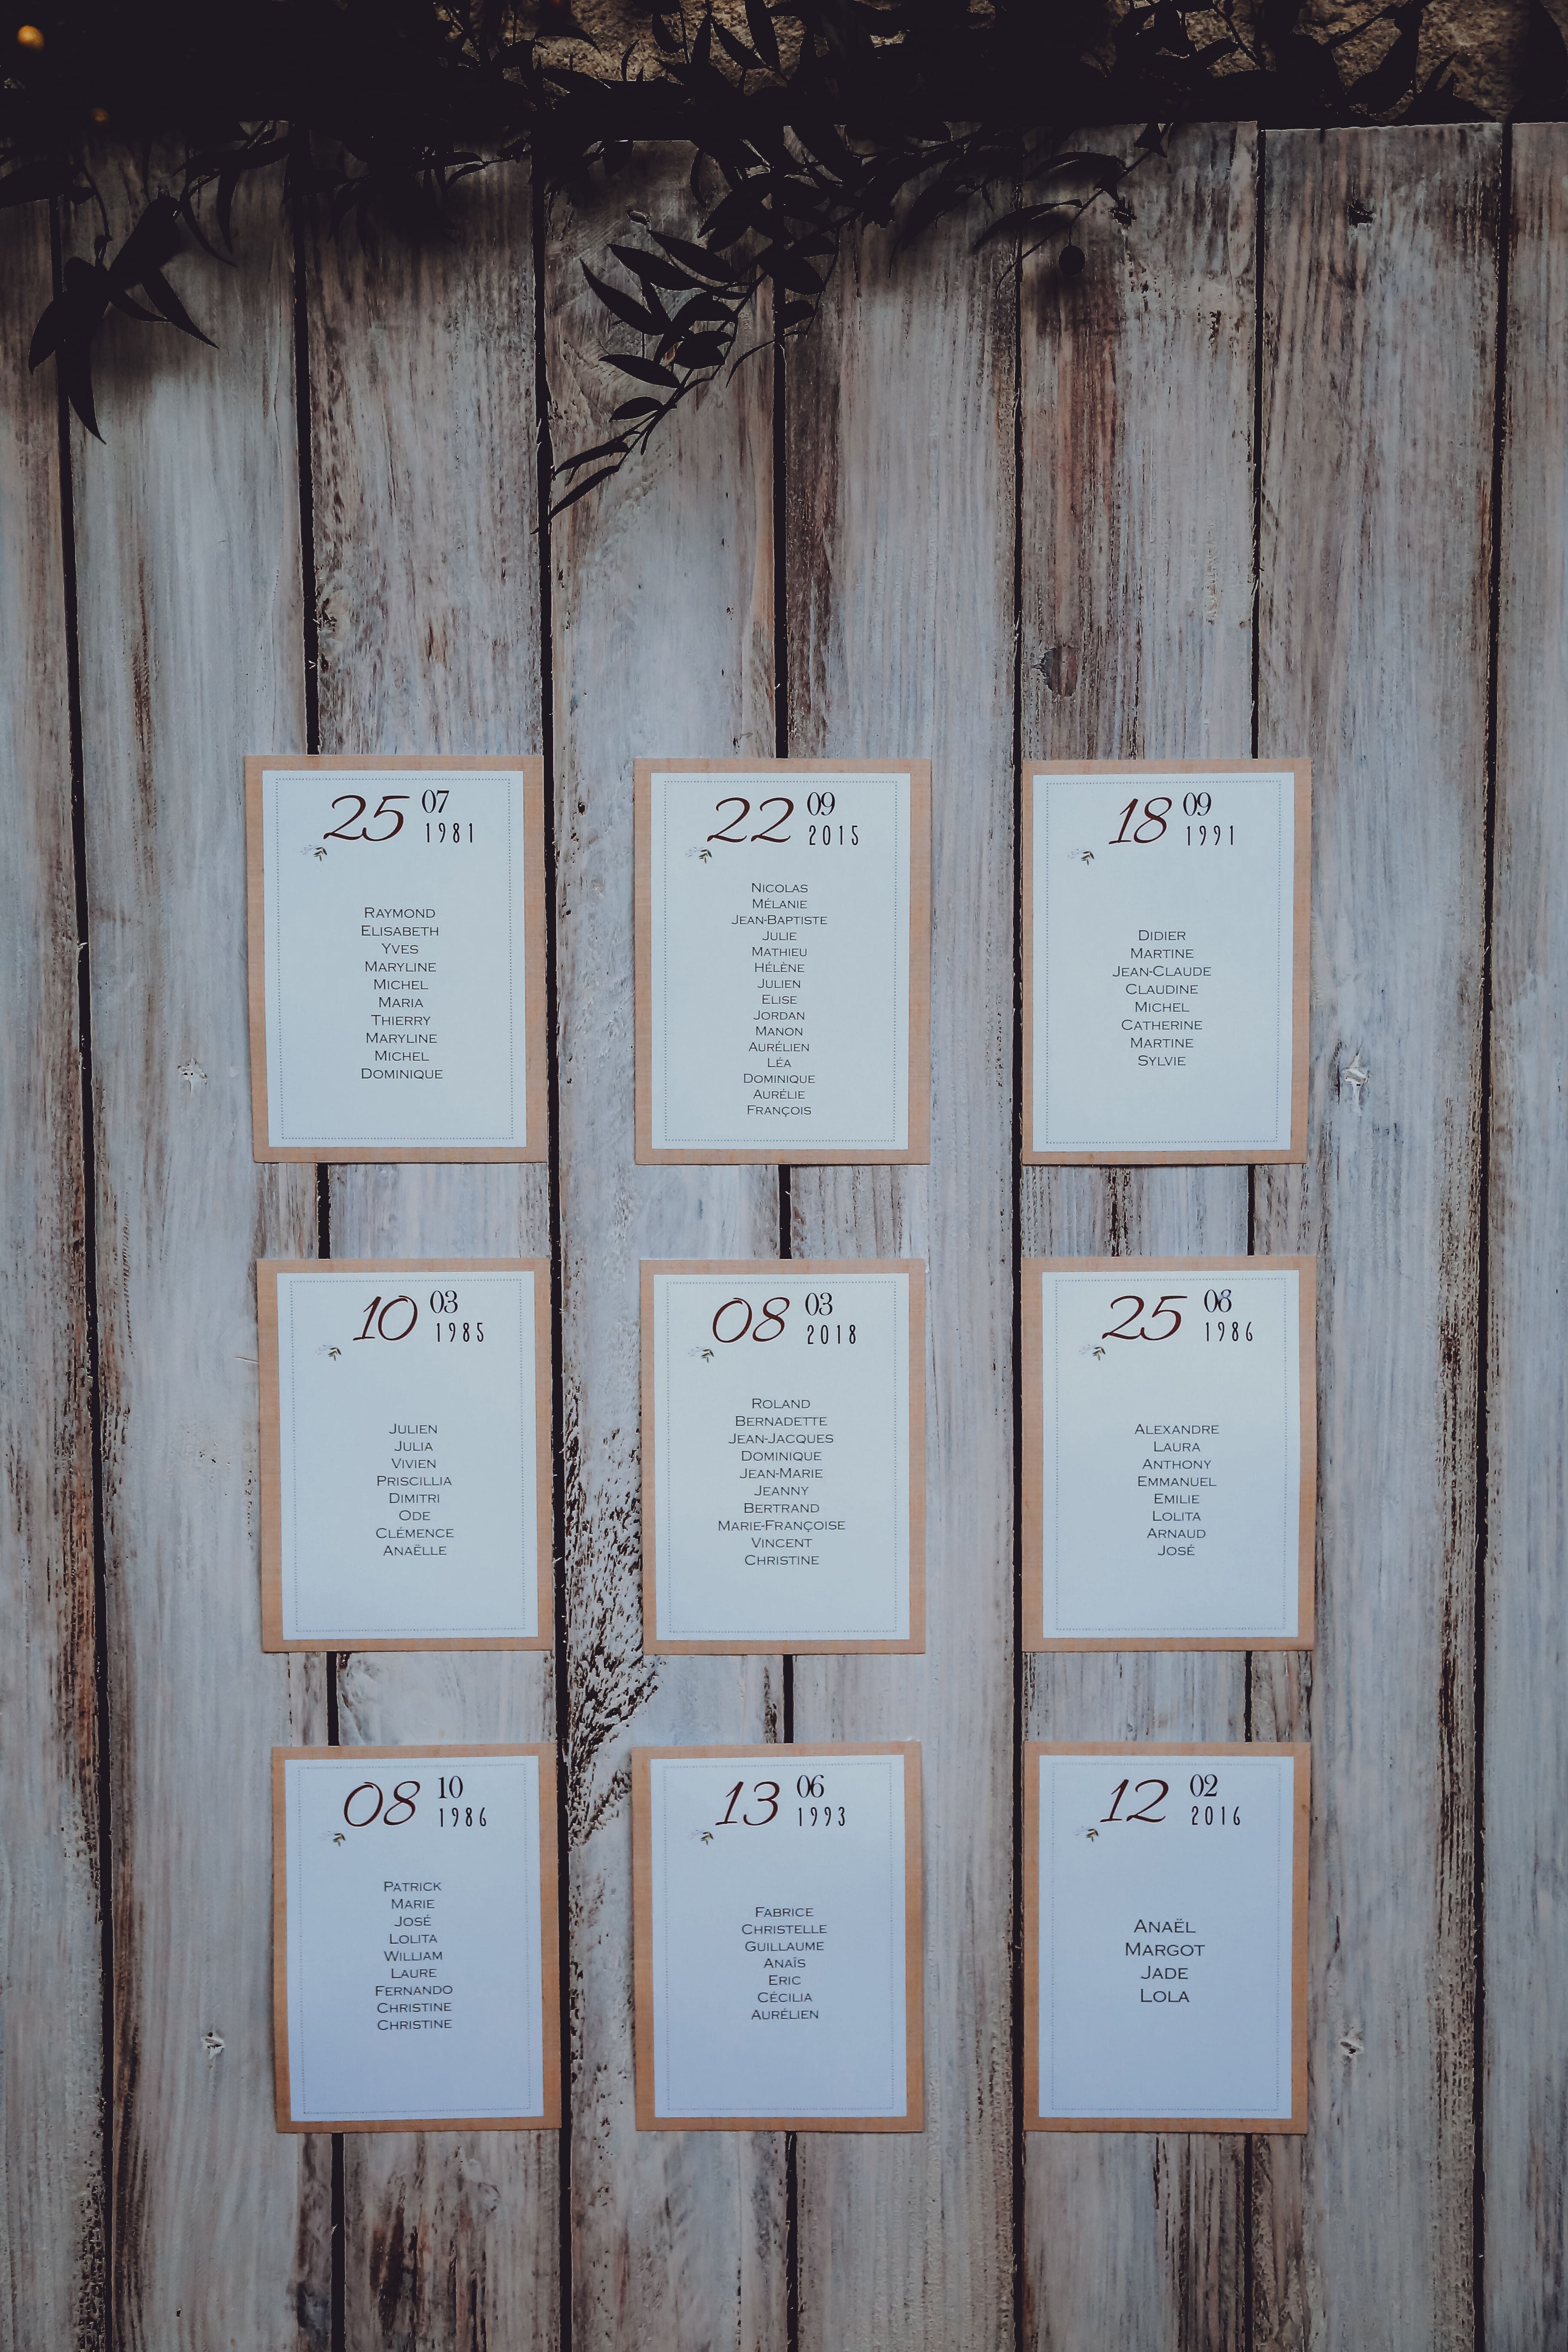 25 07
1981
RAYMOND
ELISABETH
YVES
MARYLINE
MICHEL
MARIA
THIERRY
MARYLINE
MICHEL
DOMINIQUE
22 09
2015
NICOLAS
MÉLANIE
JEAN-BAPTISTE
JULIE
MATHIEU
HÉLÈNE
JULIEN
ELISE
JORDAN
MANON
AURÉLIEN
LÉA
DOMINIQUE
AURÉLIE
FRANÇOIS
18 09
1991
DIDIER
MARTINE
JEAN-CLAUDE
CLAUDINE
MICHEL
CATHERINE
MARTINE
SYLVIE
10 03
1985
JULIEN
JULIA
VIVIEN
PRISCILLIA
DIMITRI
ODE
CLÉMENCE
ANAËLLE
08 03
2018
ROLAND
BERNADETTE
JEAN-JACQUES
DOMINIQUE
JEAN-MARIE
JEANNY
BERTRAND
MARIE-FRANÇOISE
VINCENT
CHRISTINE
25
1986
ALEXANDRE
LAURA
ANTHONY
EMMANUEL
EMILIE
LOLITA
ARNAUD
JOSÉ
08 10
1986
PATRICK
MARIE
JOSÉ
LOLITA
WILLIAM
LAURE
FERNANDO
CHRISTINE
CHRISTINE
13 06
1993
FABRICE
CHRISTELLE
GUILLAUME
ANAÏS
ERIC
CÉCILIA
AURÉLIEN
12 02
2016
ANAËL
MARGOT
JADE
LOLA